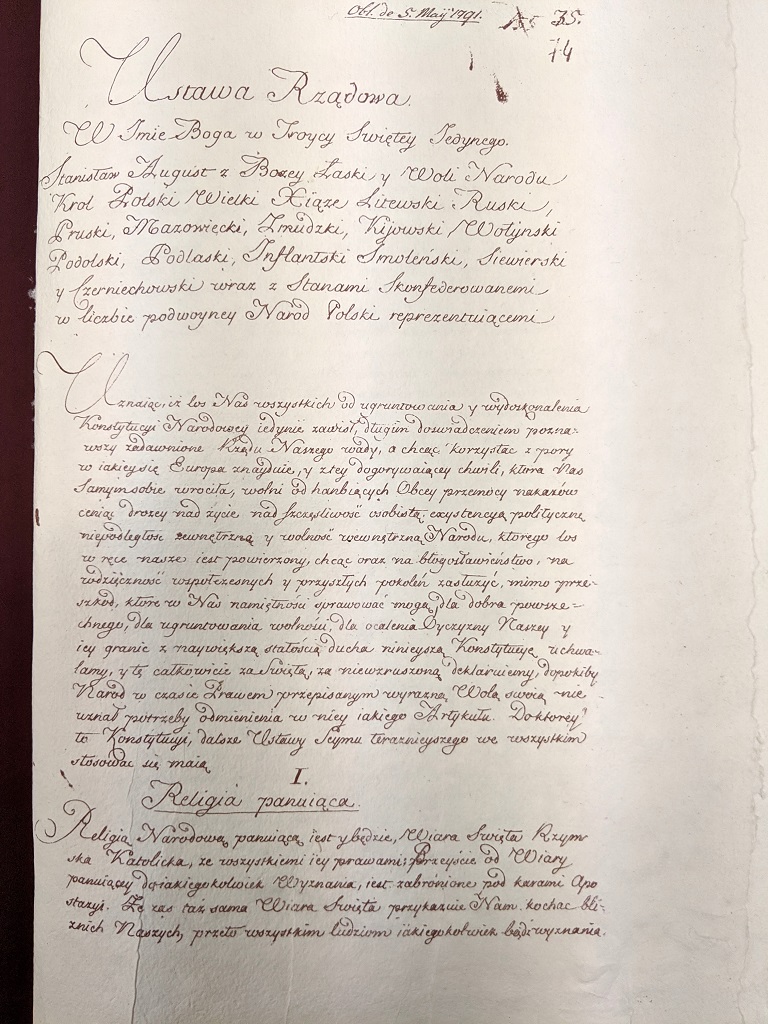 Obl. de 5. Maÿ 1791.
35.
74
Ustawa Rządowa.
W Imie Boga w Troycy Swiętey Iedynego.
Stanisław August z Bozey Łaski y Woli Narodu
Krol Polski Wielki Xiąze Litewski Ruski,
Pruski, Mazowięcki, Zmudzki, Kijowski Wołyński
Podolski, Podlaski, Inflantski Smoleński, Siewierski
y Czerniechowski wraz z Stanami Skonfederowanemi
w liczbie podwoyney Narod Polski reprezentuiącemi
Uznaiąc, iż los Nas wszystkich od ugruntowania y wydoskonalenia
Konstytucyi Narodowey iedynie zawisł, długim doswiadczeniem pozna-
wszy zadawnione Rządu Naszego wady, a chcąc korzystać z pory
w iakiey się Europa znayduie, y z tey dogorywaiącey chwili, ktora Nas
samym sobie wrociła, wolni od hanbiących Obcey przemocy nakazów
ceniąc drozey nad życie nad szczęsliwość osobistą, exystencyą polityczną
niepodległość zewnętrzną y wolność wewnętrzną Narodu, ktorego los
w ręce nasze iest powierzony, chcąc oraz na błogosławieństwo, na
wdzięczność wspołczesnych y przyszłych pokoleń zasłużyć, mimo prze-
szkod, ktore w Nas namiętności sprawować mogą, dla dobra powsze-
chnego, dla ugruntowania wolności, dla ocalenia Oyczyzny Naszey y
iey granic z naywiększą stałością ducha ninieyszą Konstytucyę uchwa-
lamy, y tę całkowicie za swiętą, za niewzruszoną deklaruiemy, dopokiby
Narod w czasie Prawem przepisanym wyrazną Wolą swoią nie
uznał potrzeby odmienienia w niey iakiego Artykułu. Doktorey
to Konstytucyi, dalsze Ustawy Seymu teraznieyszego we wszystkim
stosować się maią
I.
Religia panuiąca.
Religią Narodową panuiącą iest y będzie, Wiara Swięta Rzym
ska Katolicka, ze wszystkiemi iey prawami; Przeyście od Wiary
panuiącey do iakiegokolwiek Wyznania, iest zabronione pod karami Apo
stazyi. Ze zas taż sama Wiara Swięta przykazuie Nam kochać bli-
znich Naszych, przeto wszystkim ludziom iakiegokolwiek bądź wyznania.